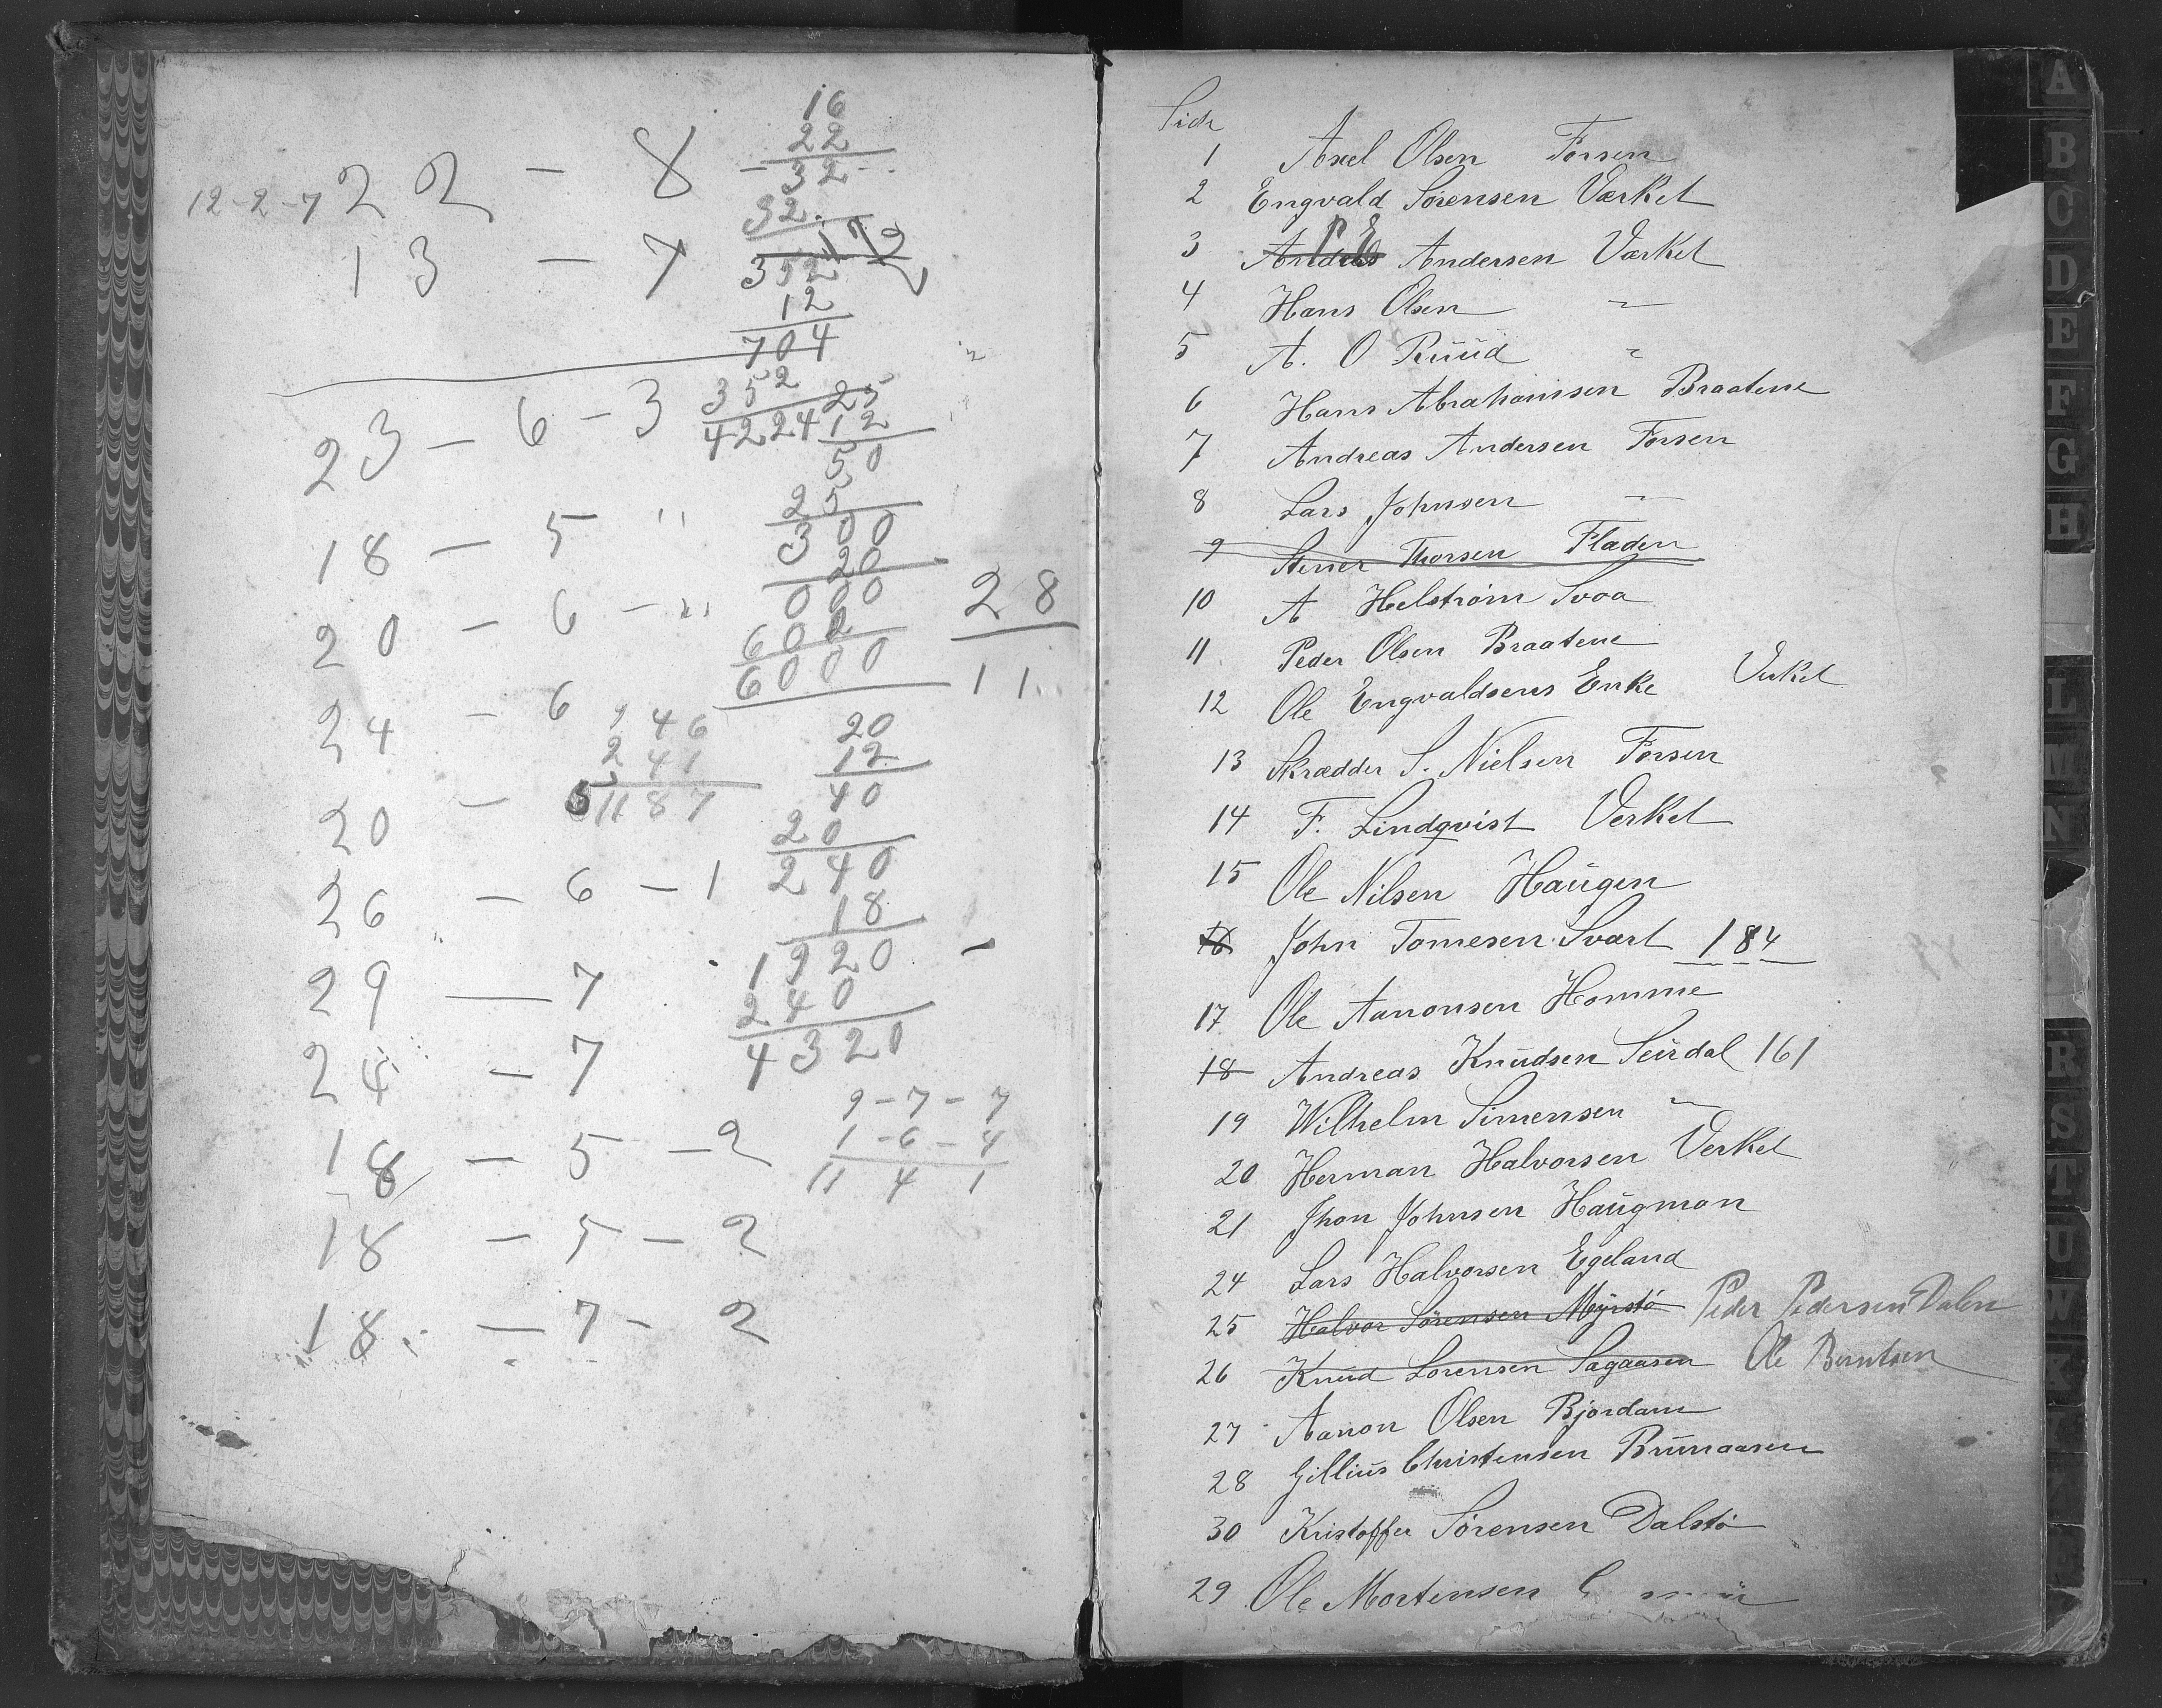 16
22
32
32
352
12
704
352
4224
172
12-2-7
22 - 8 -
13 - 7
23 - 6 - 3
18 - 5 "
20 - 6 - "
24 - 6
20 -
26 - 6 - 1
29 - 7
24 - 7
18 - 5 - 2
18 - 5 - 2
18 - 7 - 2
25
12
50
25
300
20
000
600
6000
28
11
946
241
1187
20
12
40
20
240
18
1920
240
4320
9-7-7
1-6-4
11 4 1
Side
1 Axel Olsen Forsen
2 Engvald Sørensen Værket
3 Andreas P E Andersen Værket
4 Hans Olsen "
5 A. O Ruud "
6 Hans Abrahamssen Braatene
7 Andreas Andersen Forsen
8 Lars Johnsen "
9 Stener Thorsen Fladen
10 A Helstrøm Svaa
11 Peder Olsen Braatene
12 Ole Engvaldsens Enke Verket
13 Skrædder S. Nielsen Forsen
14 F. Lindqvist Verket
15 Ole Nilsen Haugen
16 John Tomesen Svart 184
17 Ole Aanonsen Homme
18 Andreas Knudsen Seirdal 161
19 Wilhelm Simensen "
20 Herman Halvorsen Verket
21 Jhon Johnsen Haugman
24 Lars Halvorsen Egeland
25 Halvor Sørensen Myrstø Peder Pedersen Dalen
26 Knud Lorensen Sagaasen Ole Berntsen
27 Aanon Olsen Bjordam
28 Gillius Christensen Brunaasen
30 Kristoffer Sørensen Dalstø
29 Ole Mortensen
A
B
C
D
E
F
G
H
L
M
N
R
S
T
U